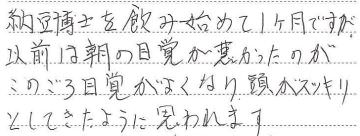 納豆博士を飲み始めて1ヶ月ですが、
以前は朝の目覚が悪かったのが
このごろ目覚がよくなり、頭がスッキリ
としてきたように思われます